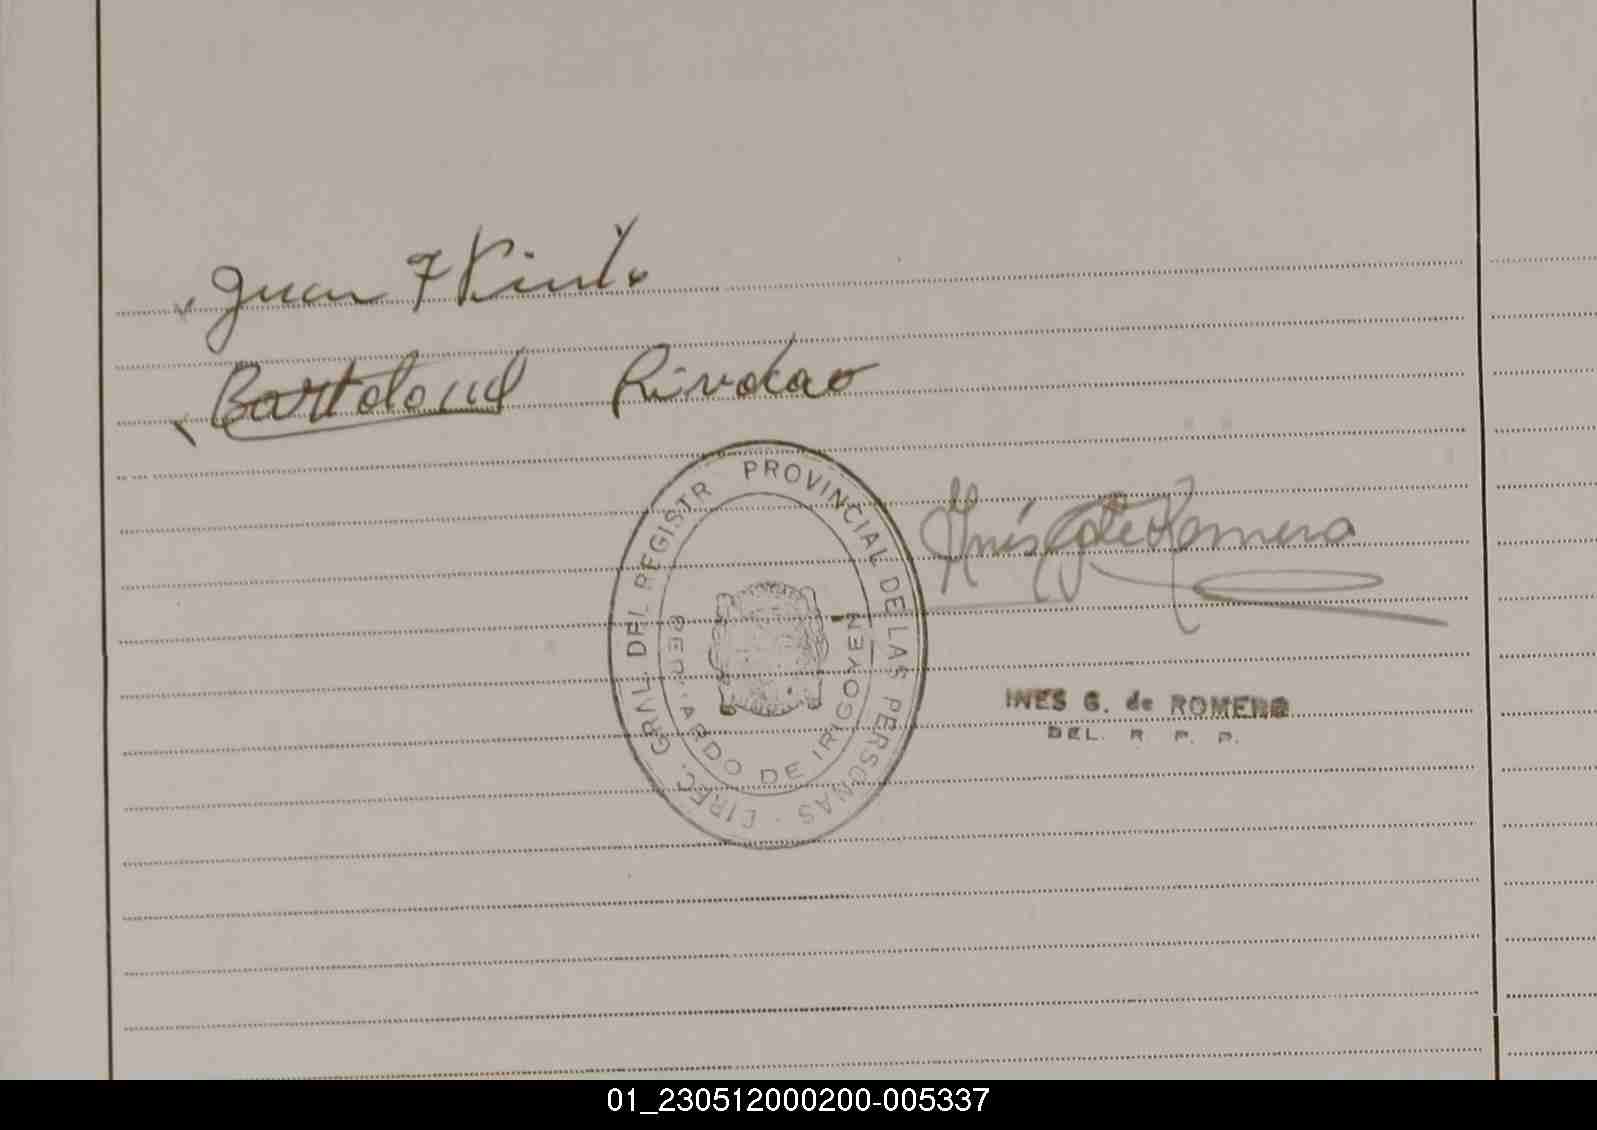 Juan F
Bartolomé
Inés G de Romero
DIREC. GRAL. DEL REGISTR PROVINCIAL DE LAS PERSONAS
BERNARDO DE IRIGOYEN
INES G. de ROMERO
DEL. R. P. P.
01_230512000200-005337